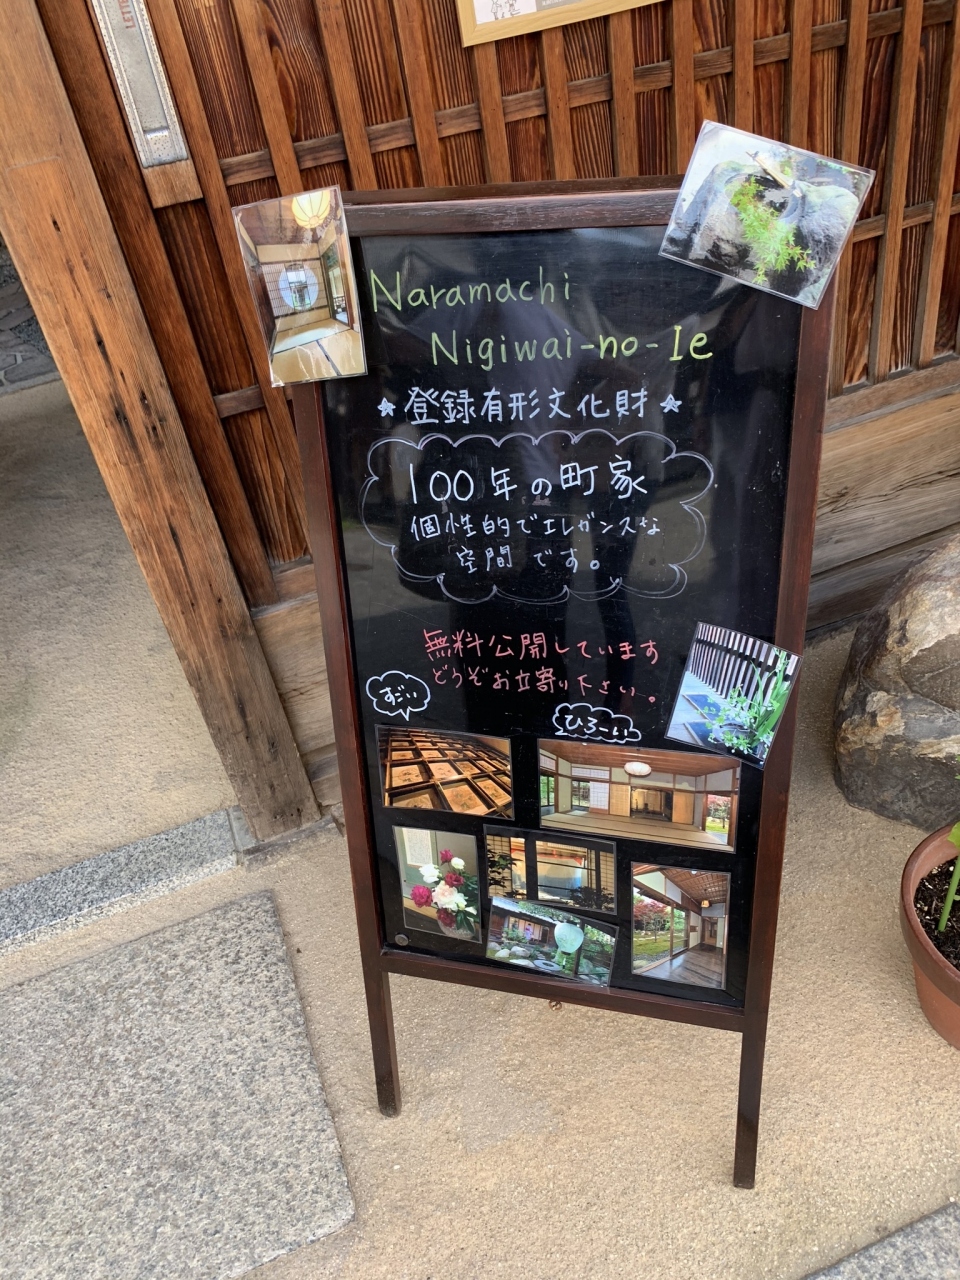 Naramachi
Nigiwai-no-Ie
★登録有形文化財★
100年の町家
個性的でエレガンスな
空間です。
無料公開しています
どうぞお立寄り下さい。
すごい
ひろーい